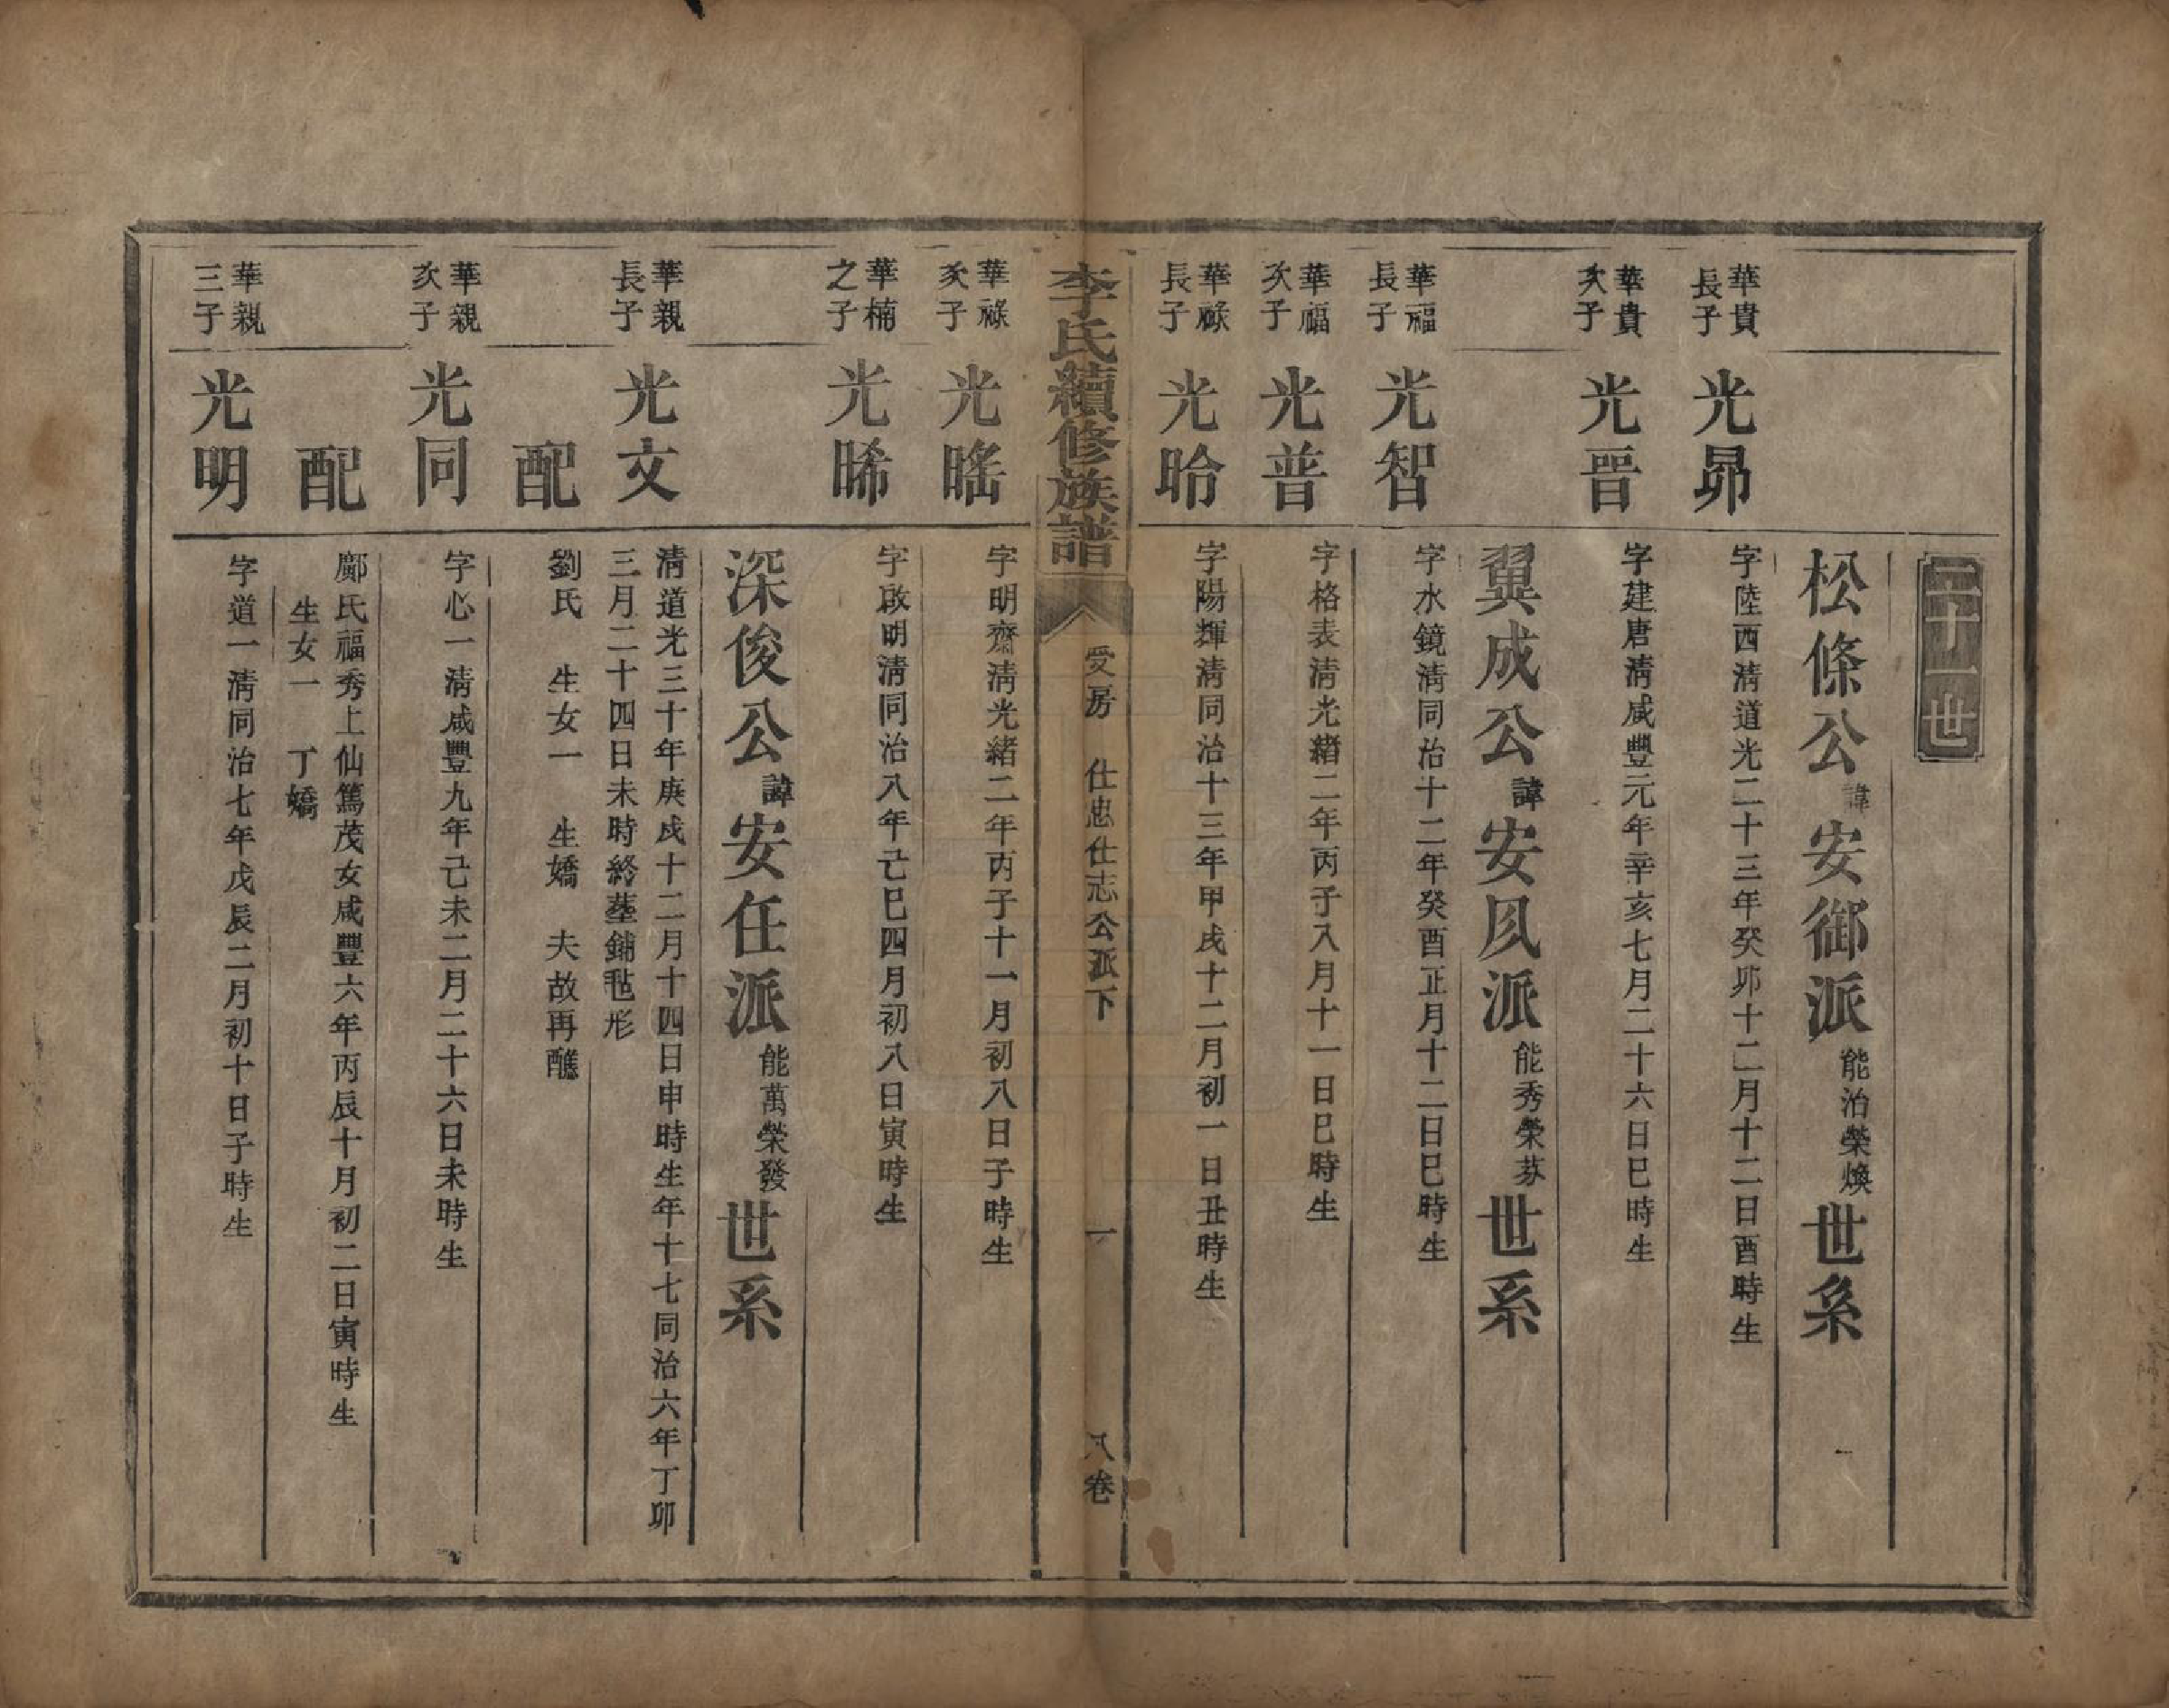 二十一世
松條公諱安御派能治榮煥世系
華貴長子
光昴
字陸西清道光二十三年癸卯十二月十二日酉時生
華貴次子
光晉
字建唐清咸豐元年辛亥七月二十六日巳時生
翼成公諱安夙派能秀榮荔世系
華福長子
光智
字水鏡清同治十二年癸酉正月十二日巳時生
華福次子
光普
字格表清光緒二年丙子八月十一日巳時生
華祿長子
光晗
字陽輝清同治十三年甲戌十二月初一日丑時生
李氏續修族譜
受房 仕忠仕志公派下
一
八卷
華祿次子
光暚
字明齋清光緒二年丙子十一月初八日子時生
華楠之子
光晞
字啟明清同治八年己巳四月初八日寅時生
深俊公諱安任派能萬榮發世系
華親長子
光文
清道光三十年庚戌十二月十四日申時生年十七同治六年丁卯
三月二十四日未時終塟鋪毡形
配
劉氏 生女一 生嬌 夫故再醮
華親次子
光同
字心一清咸豐九年己未二月二十六日未時生
配
鄺氏福秀上仙篤茂女咸豐六年丙辰十月初二日寅時生
生女一 丁嬌
華親三子
光明
字道一清同治七年戊辰二月初十日子時生